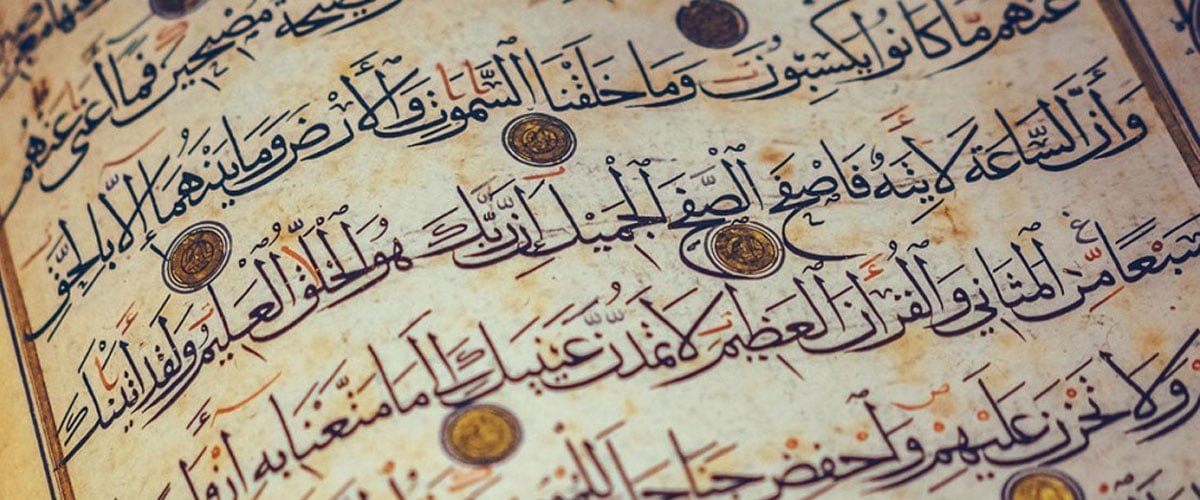 مُصْبِحِينَ فَمَا أَغْنَى عَنْهُم
عَنْهُم مَّا كَانُوا يَكْسِبُونَ وَمَا خَلَقْنَا السَّمٰوٰتِ وَالْأَرْضَ وَمَا بَيْنَهُمَا إِلَّا بِالْحَقِّ
وَأَنَّ السَّاعَةَ لَآتِيَةٌ فَاصْفَحِ الصَّفْحَ الْجَمِيلَ إِنَّ رَبَّكَ هُوَ الْخَلّٰقُ الْعَلِيمُ وَلَقَدْ آتَيْنٰكَ
سَبْعًا مِّنَ الْمَثَانِي وَالْقُرْآنَ الْعَظِيمَ لَا تَمُدَّنَّ عَيْنَيْكَ إِلَى مَا مَتَّعْنَا بِهِ
وَلَا تَحْزَنْ عَلَيْهِمْ وَاخْفِضْ جَنَاحَكَ